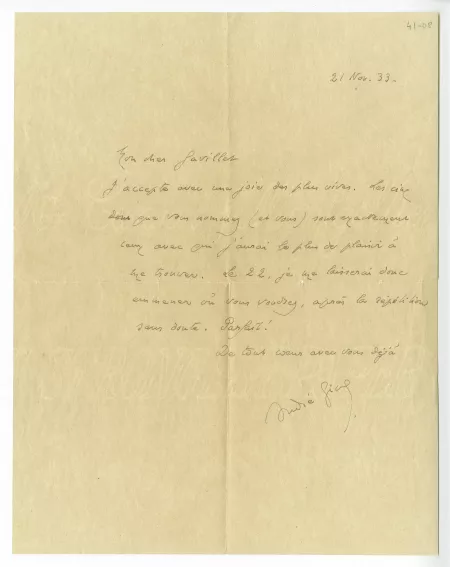 41-08
21 Nov. 33.
Mon cher Gavillet
J'accepte avec une joie des plus vives. Les cinq
dont que vous nommez (et vous) sont exactement
ceux avec qui j'aurai le plus de plaisir à
me trouver. Le 22, je me laisserai donc
emmener où vous voudrez, après la répétition
sans doute. Parfait!
De tout coeur avec vous déjà
André Gide